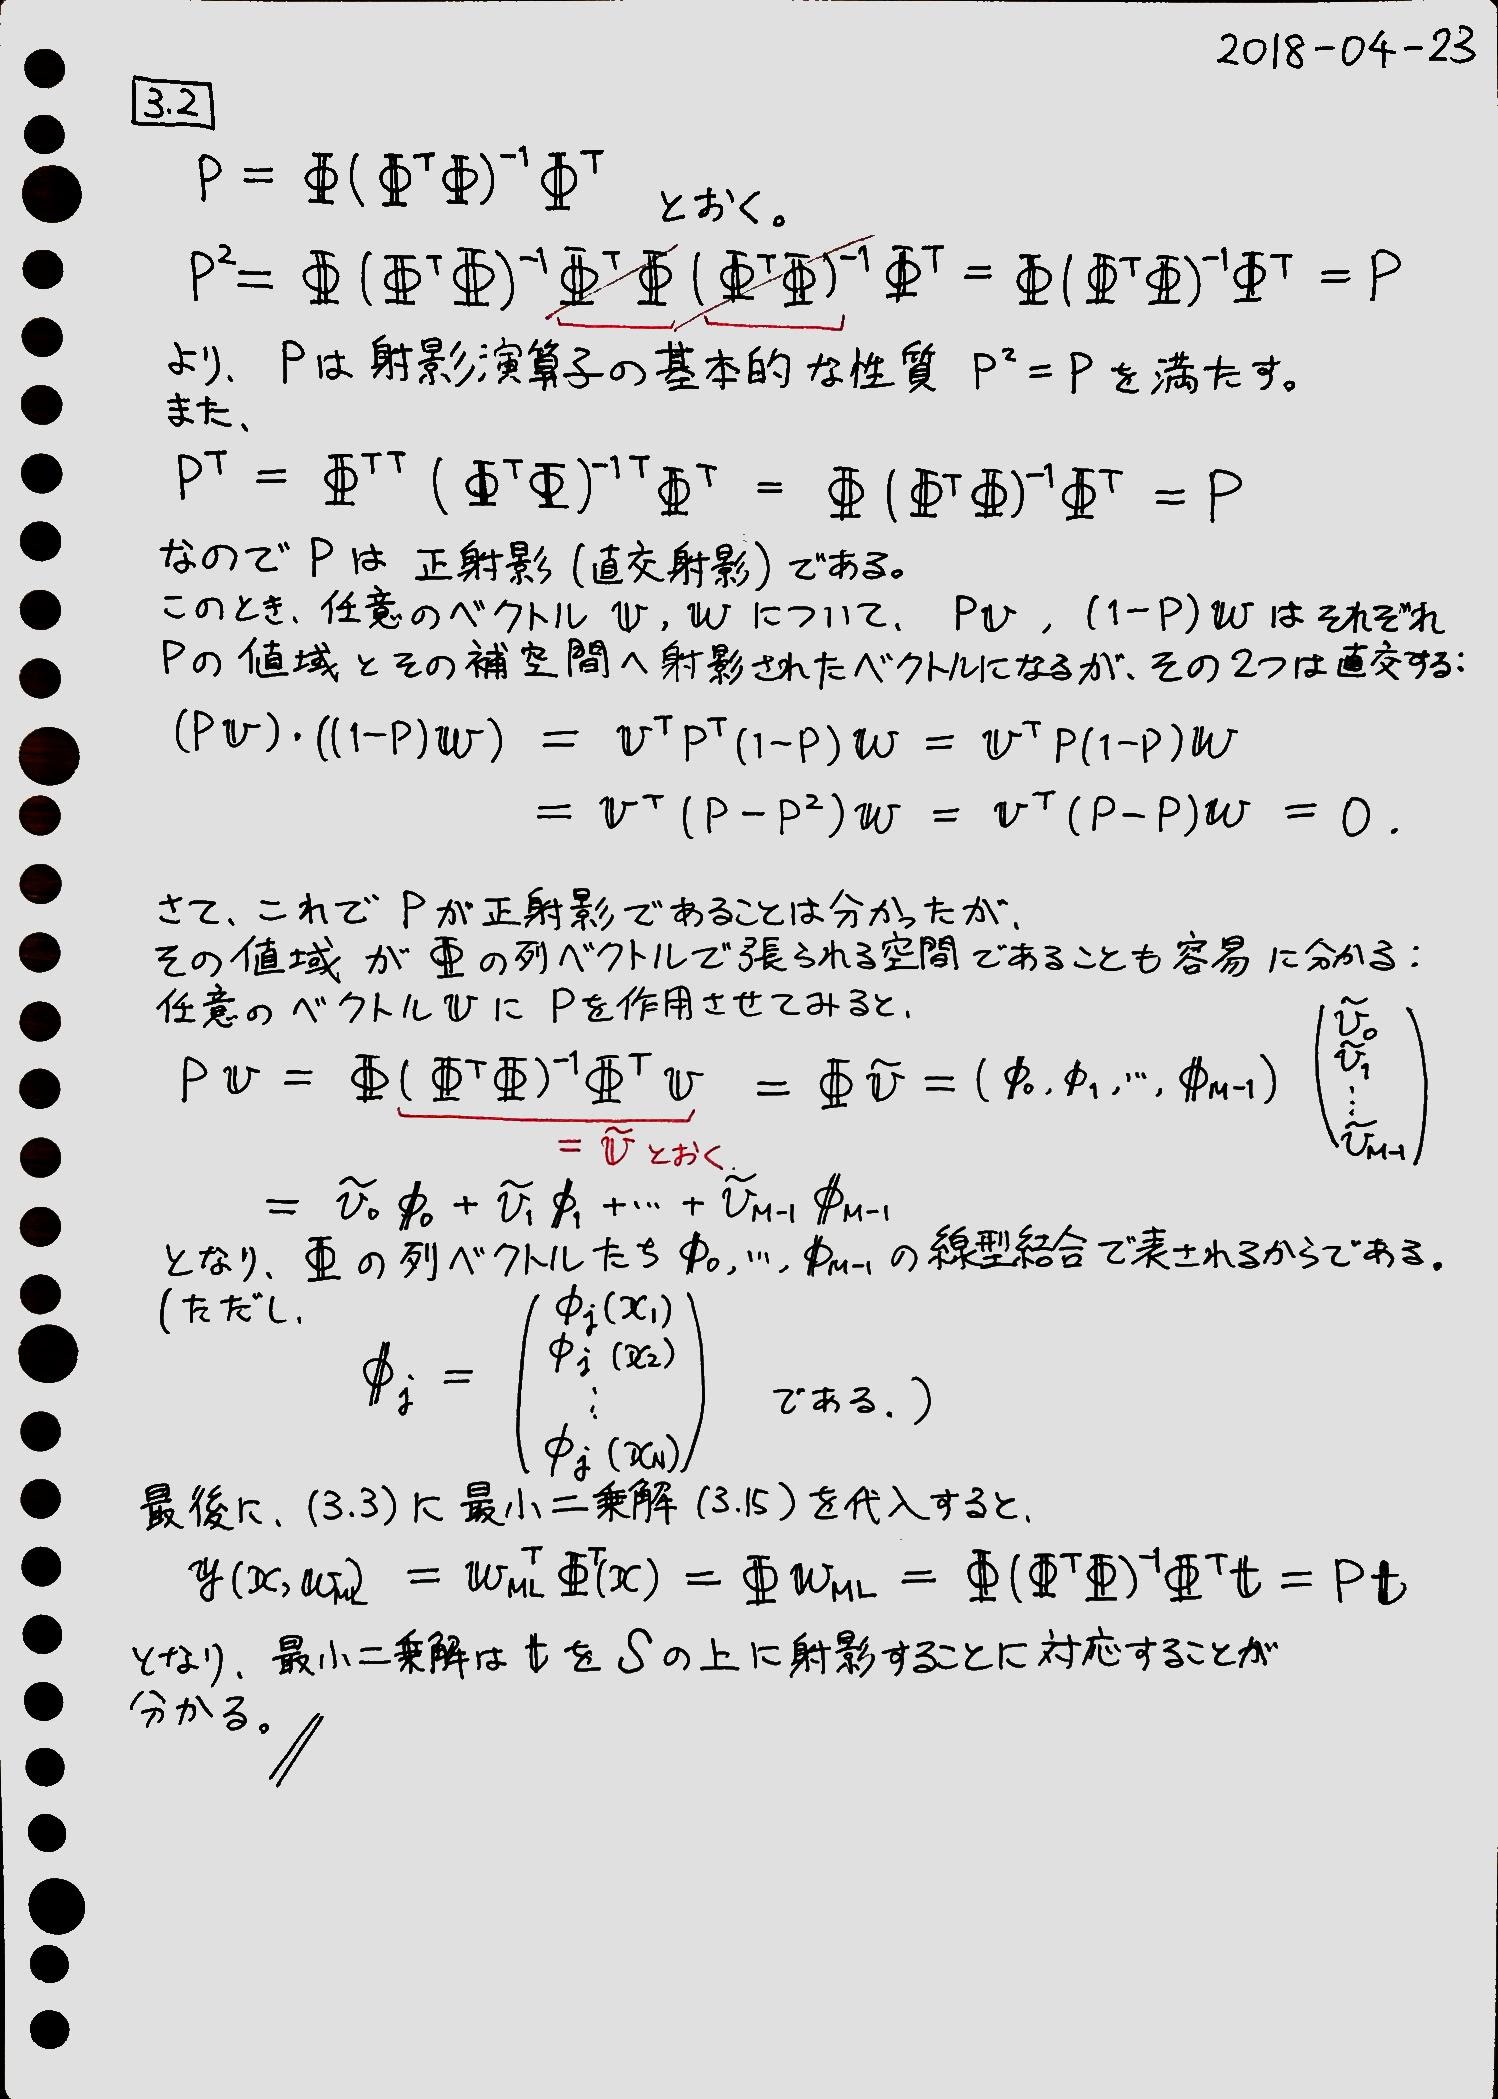 2018-04-23
3.2
P = Φ(Φ^TΦ)^{-1}Φ^T とおく。
P^2 = Φ(Φ^TΦ)^{-1}Φ^TΦ(Φ^TΦ)^{-1}Φ^T = Φ(Φ^TΦ)^{-1}Φ^T = P
より、Pは射影演算子の基本的な性質 P^2 = P を満たす。
また、
P^T = Φ^{TT}(Φ^TΦ)^{-1T}Φ^T = Φ(Φ^TΦ)^{-1}Φ^T = P
なので P は 正射影(直交射影)である。
このとき、任意のベクトル 𝕧, 𝕨 について、P𝕧, (1-P)𝕨 はそれぞれ
Pの値域とその補空間へ射影されたベクトルになるが、その2つは直交する:
(P𝕧)・((1-P)𝕨) = 𝕧^T P^T(1-P)𝕨 = 𝕧^T P(1-P)𝕨
= 𝕧^T(P-P^2)𝕨 = 𝕧^T(P-P)𝕨 = 0.
さて、これで P が正射影であることは分かったが、
その値域 が Φ の列ベクトルで張られる空間であることも容易に分かる:
任意のベクトル 𝕧 に Pを作用させてみると、
P𝕧 = Φ(Φ^TΦ)^{-1}Φ^T 𝕧 = Φ𝕧̃ = (ϕ_0, ϕ_1, …, ϕ_{M-1}) (ṽ_0 ṽ_1 ⋮ ṽ_{M-1})
= 𝕧̃ とおく.
= ṽ_0 ϕ_0 + ṽ_1 ϕ_1 + … + ṽ_{M-1} ϕ_{M-1}
となり、Φ の列ベクトルたち ϕ_0, …, ϕ_{M-1} の線型結合で表されるからである.
(ただし、
ϕ_j = (φ_j(x_1) φ_j(x_2) ⋮ φ_j(x_N)) である.)
最後に、(3.3)に最小二乗解(3.15)を代入すると、
𝕪(x, 𝕨_{ML}) = 𝕨_{ML}^T Φ^T(x) = Φ𝕨_{ML} = Φ(Φ^TΦ)^{-1}Φ^T𝕥 = P𝕥
となり、最小二乗解は 𝕥 を S の上に射影することに対応することが
分かる。//